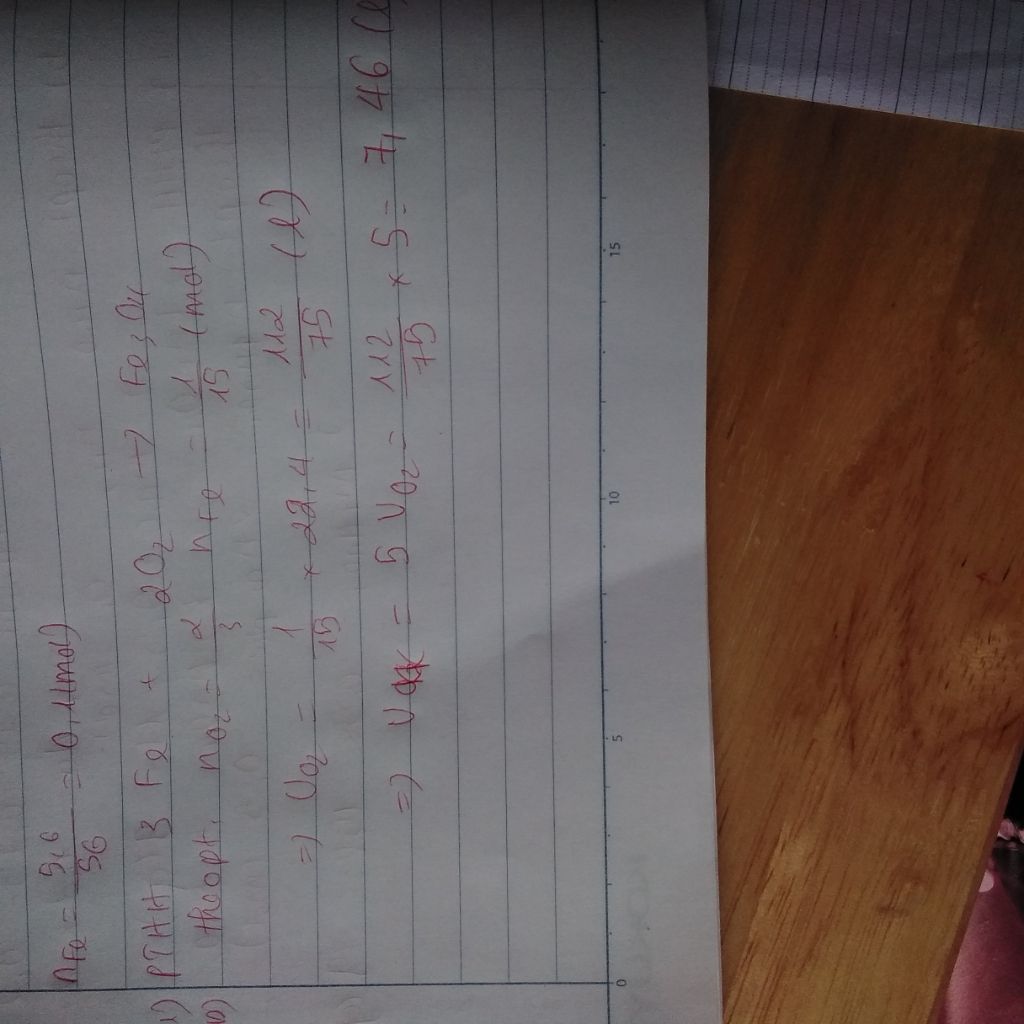 nFe = 5,6/56 = 0,1(mol)
1) PTHH 3 Fe + 2O₂ → Fe₃O₄
theo pt. nO₂ = 2/3 nFe = 1/15 (mol)
=) VO₂ = 1/15 × 22,4 = 112/75 (l)
=) Vkk = 5 VO₂ = 112/75 × 5 = 7,46 (l
0 5 10 15